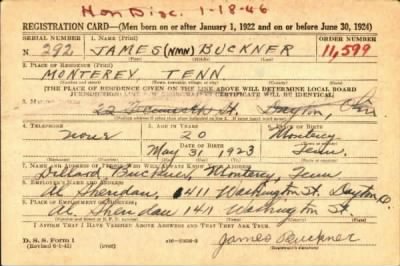 Hon Disc. 1-18-46
REGISTRATION CARD—(Men born on or after January 1, 1922 and on or before June 30, 1924)
SERIAL NUMBER 1. NAME (Print) ORDER NUMBER
N 292 JAMES (NMN) BUCKNER 11,599
(First) (Middle) (Last)
2. PLACE OF RESIDENCE (Print)
MONTEREY TENN
[THE PLACE OF RESIDENCE GIVEN ON THE LINE ABOVE WILL DETERMINE LOCAL BOARD
JURISDICTION; LINE 2 OF REGISTRATION CERTIFICATE WILL BE IDENTICAL]
3. MAILING ADDRESS
22 St. Dayton, Ohio
4. TELEPHONE 5. AGE IN YEARS 6. PLACE OF BIRTH
none 20 Monterey
DATE OF BIRTH
May 31 1923 Tenn
7. NAME AND ADDRESS OF PERSON WHO WILL ALWAYS KNOW YOUR ADDRESS
Dillard Buckner, Monterey, Tenn
8. EMPLOYER'S NAME AND ADDRESS
Al Sheridan, 1411 Washington St. Dayton O.
9. PLACE OF EMPLOYMENT OR BUSINESS
Al Sheridan 141 Washington St.
I AFFIRM THAT I HAVE VERIFIED ABOVE ANSWERS AND THAT THEY ARE TRUE.
D. S. S. Form 1
(Revised 6-1-42) James Buckner
(Registrant's signature)